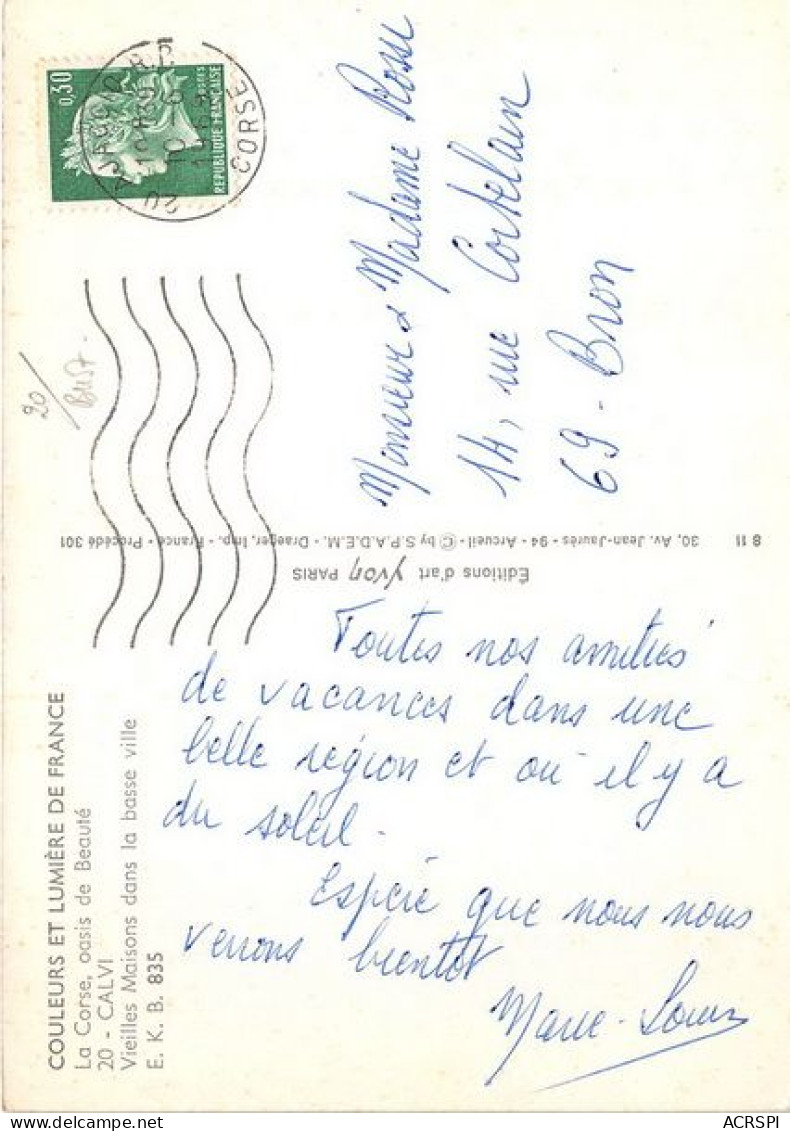 COULEURS ET LUMIÈRE DE FRANCE
La Corse, oasis de Beauté
20 - CALVI
Vieilles Maisons dans la basse ville
E. K. B. 835
Toutes nos amitiés
de vacances dans une
belle région et où il y a
du soleil.
Espère que nous nous
verrons bientôt
Marie-Louise
Éditions d'art yvon PARIS
30, Av. Jean-Jaurès - 94 - Arcueil - © by S.P.A.D.E.M. - Draeger, Imp. - France - Procédé 301
8 11
0,30
POSTES
REPUBLIQUE FRANÇAISE
20 AJACCIO R.P.
CORSE
Monsieur & Madame Rossi
14, rue Cortelain
69 - Bron
20/
ACRSPI